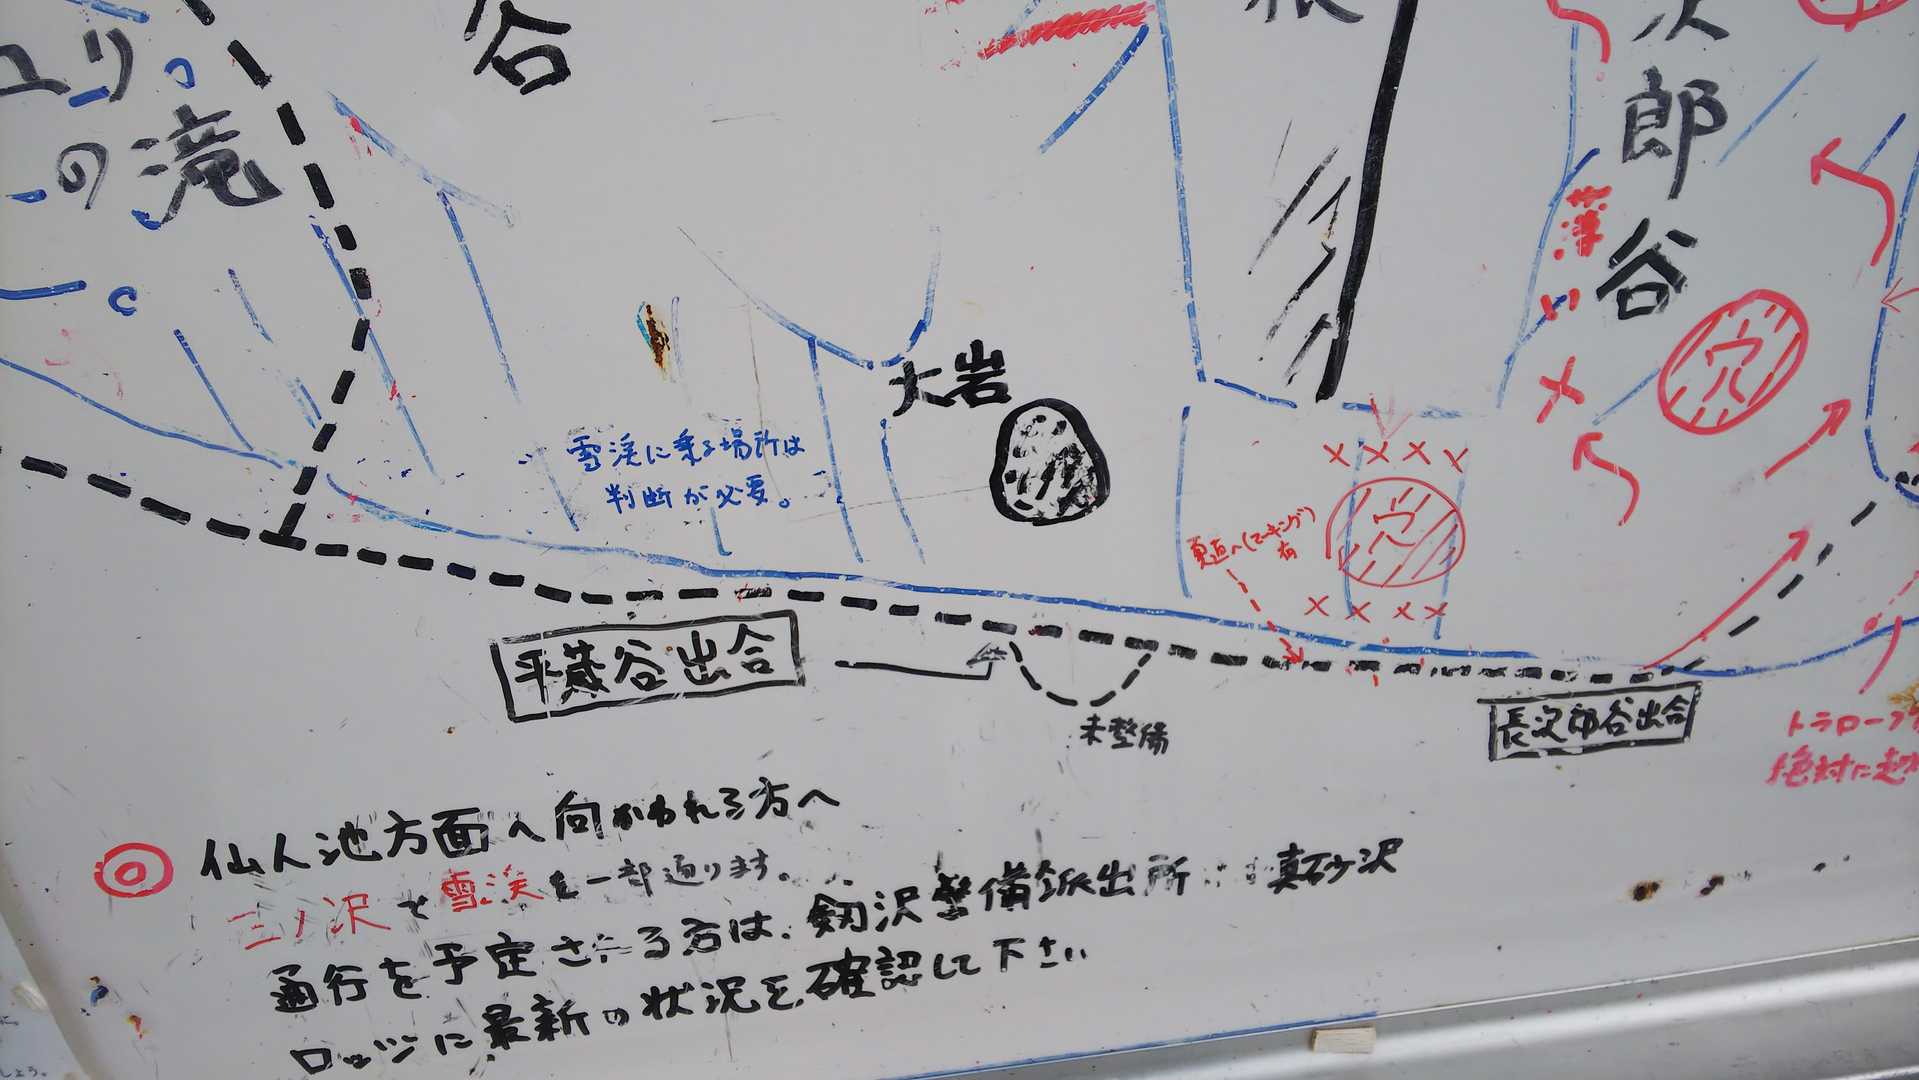 谷
ユリ
の滝
次
郎
谷
薄
い
穴
大岩
雪渓に乗る場所は
判断が必要。
夏道へ(マーキング)
有
穴
平蔵谷出合
未整備
長次郎谷出合
トラロープ
絶対に越
◎ 仙人池方面へ向かわれる方へ
三ノ沢で雪渓を一部通ります。
通行を予定される方は、剱沢警備派出所 真砂沢
ロッジに最新の状況を確認して下さい
しょう。